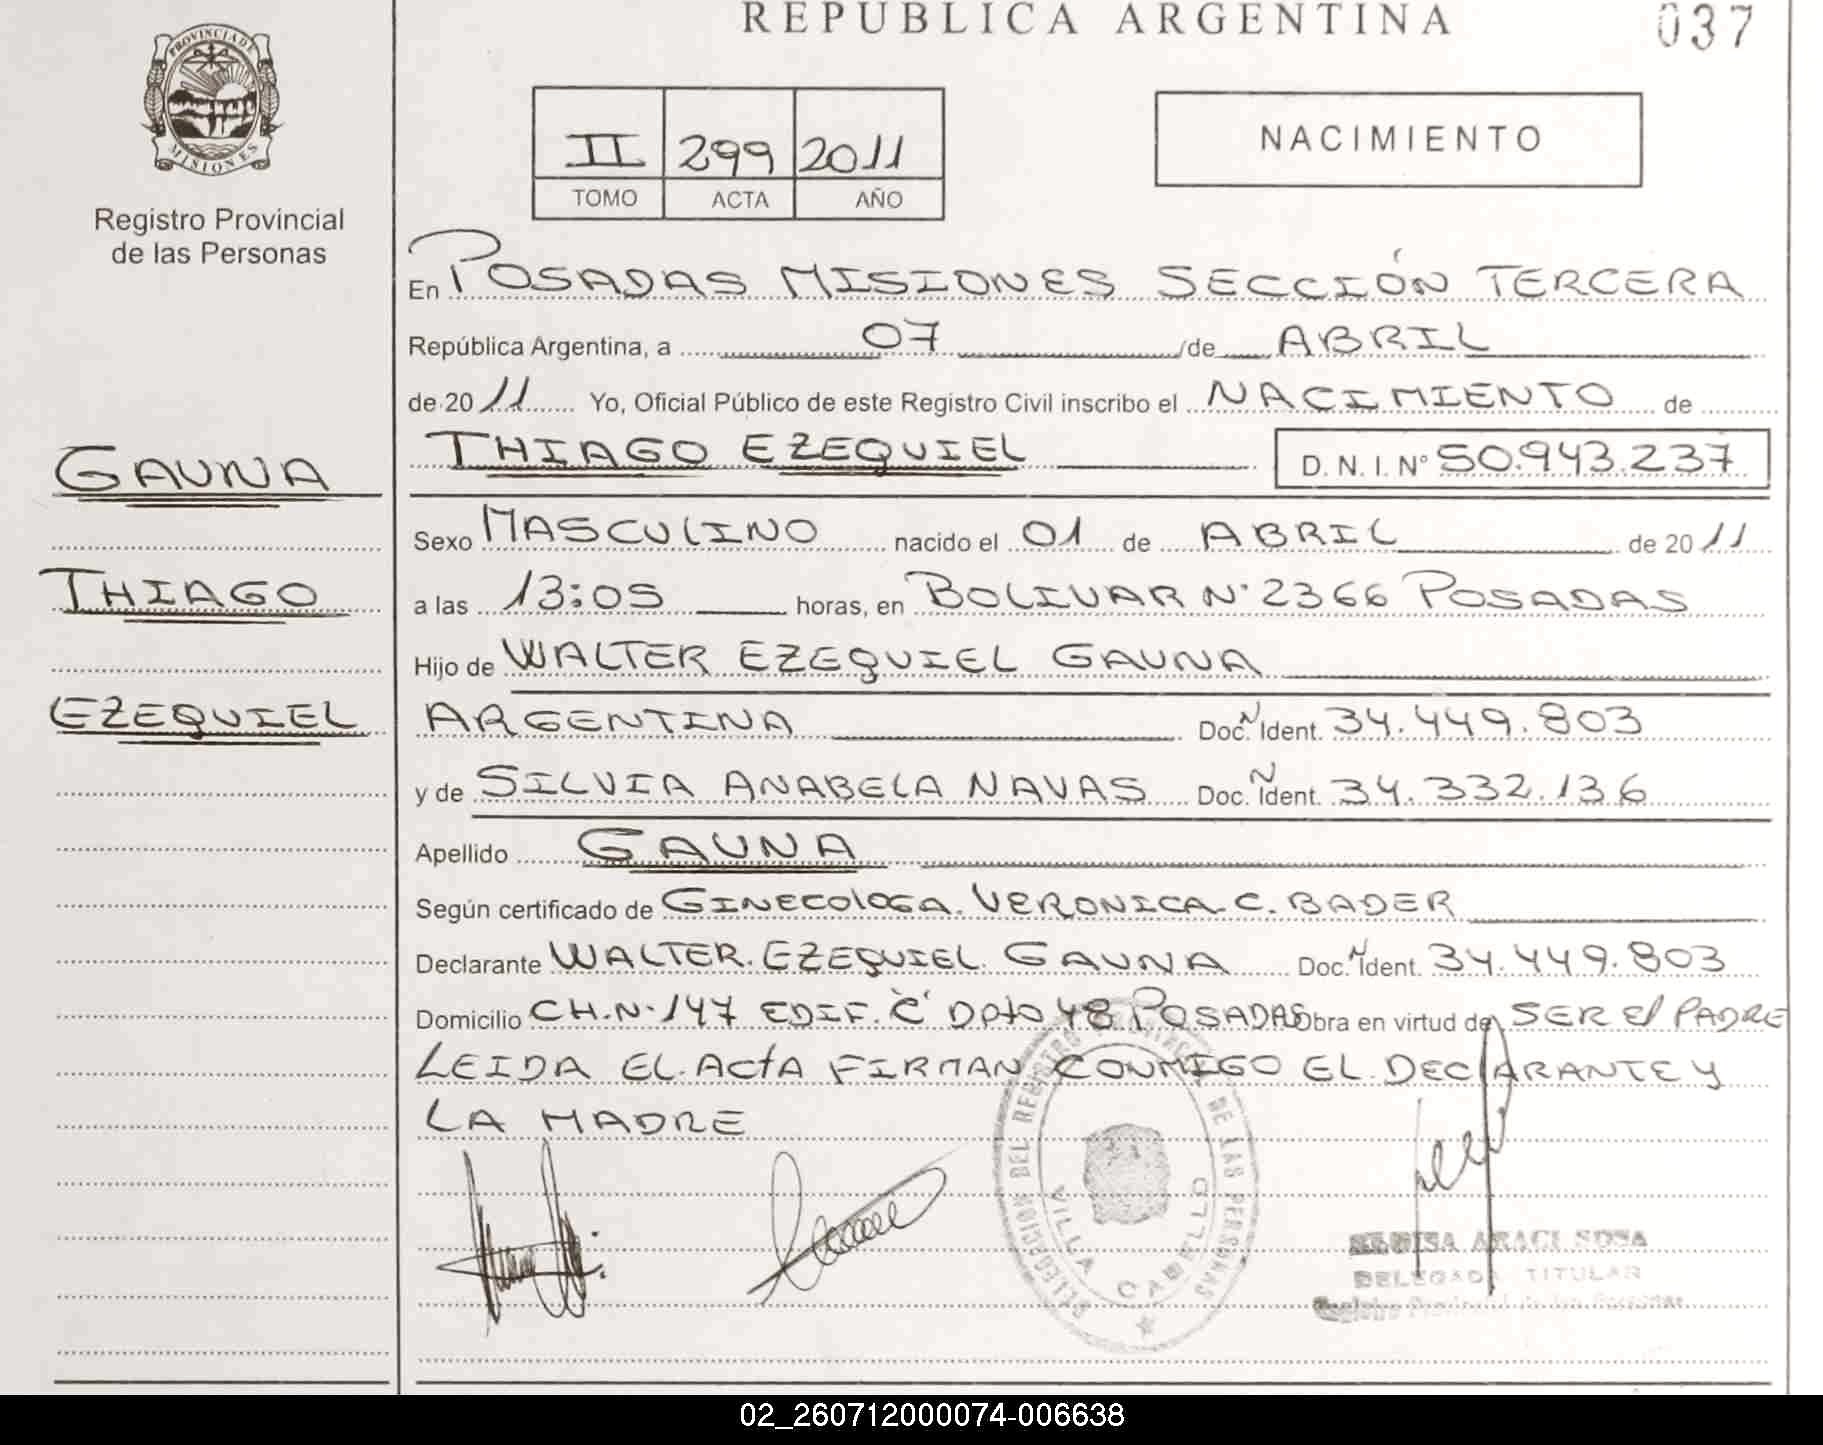 REPUBLICA ARGENTINA
037
PROVINCIA DE
MISIONES
Registro Provincial
de las Personas
II 299 2011
TOMO ACTA AÑO
NACIMIENTO
En POSADAS MISIONES SECCIÓN TERCERA
República Argentina, a 07 de ABRIL
de 20 11 Yo, Oficial Público de este Registro Civil inscribo el NACIMIENTO de
THIAGO EZEQUIEL D. N. I. N° 50.943.237
GAUNA
THIAGO
EZEQUIEL
Sexo MASCULINO nacido el 01 de ABRIL de 20 11
a las 13:05 horas, en BOLIVAR N° 2366 POSADAS
Hijo de WALTER EZEQUIEL GAUNA
ARGENTINA Doc. N Ident. 34.449.803
y de SILVIA ANABELA NAVAS Doc. N Ident. 34.332.136
Apellido GAUNA
Según certificado de GINECOloGA. VERONICA. C. BADER
Declarante WALTER. EZEQUIEL. GAUNA Doc. N Ident. 34.449.803
Domicilio CH. N. 147 EDIF. "C" Dpto 48 POSADAS Obra en virtud de SER El PADRE
LEIDA EL. ACtA FIRMAN CONMIGO EL. DECLARANTE Y
LA MADRE
DELEGACION DEL REGISTRO PROVINCIAL DE LAS PERSONAS
VILLA CABELLO
ARACI SOSA
DELEGADA TITULAR
Registro Provincial de las Personas
02_260712000074-006638